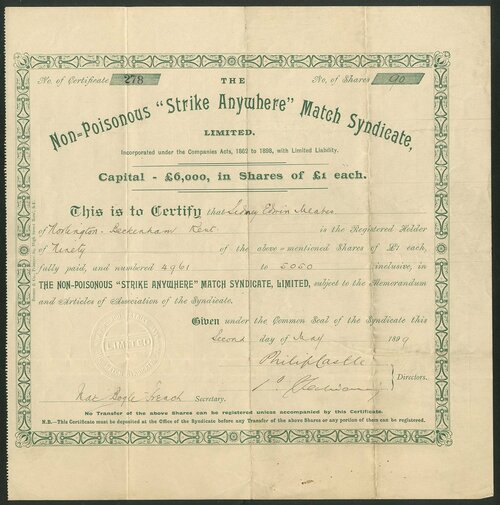 No. of Certificate 278
No. of Shares 90
THE
Non-Poisonous "Strike Anywhere" Match Syndicate,
LIMITED.
Incorporated under the Companies Acts, 1862 to 1898, with Limited Liability.
Capital - £6,000, in Shares of £1 each.
This is to Certify that Sidney Edwin
of Beckenham Kent is the Registered Holder
of Ninety of the above-mentioned Shares of £1 each,
fully paid, and numbered 4961 to 5050 inclusive, in
THE NON-POISONOUS "STRIKE ANYWHERE" MATCH SYNDICATE, LIMITED, subject to the Memorandum
and Articles of Association of the Syndicate.
Given under the Common Seal of the Syndicate this
Second day of May 1899
Philip Castle
Directors.
Secretary.
LIMITED
No Transfer of the above Shares can be registered unless accompanied by this Certificate.
N.B.—This Certificate must be deposited at the Office of the Syndicate before any Transfer of the above Shares or any portion of them can be registered.